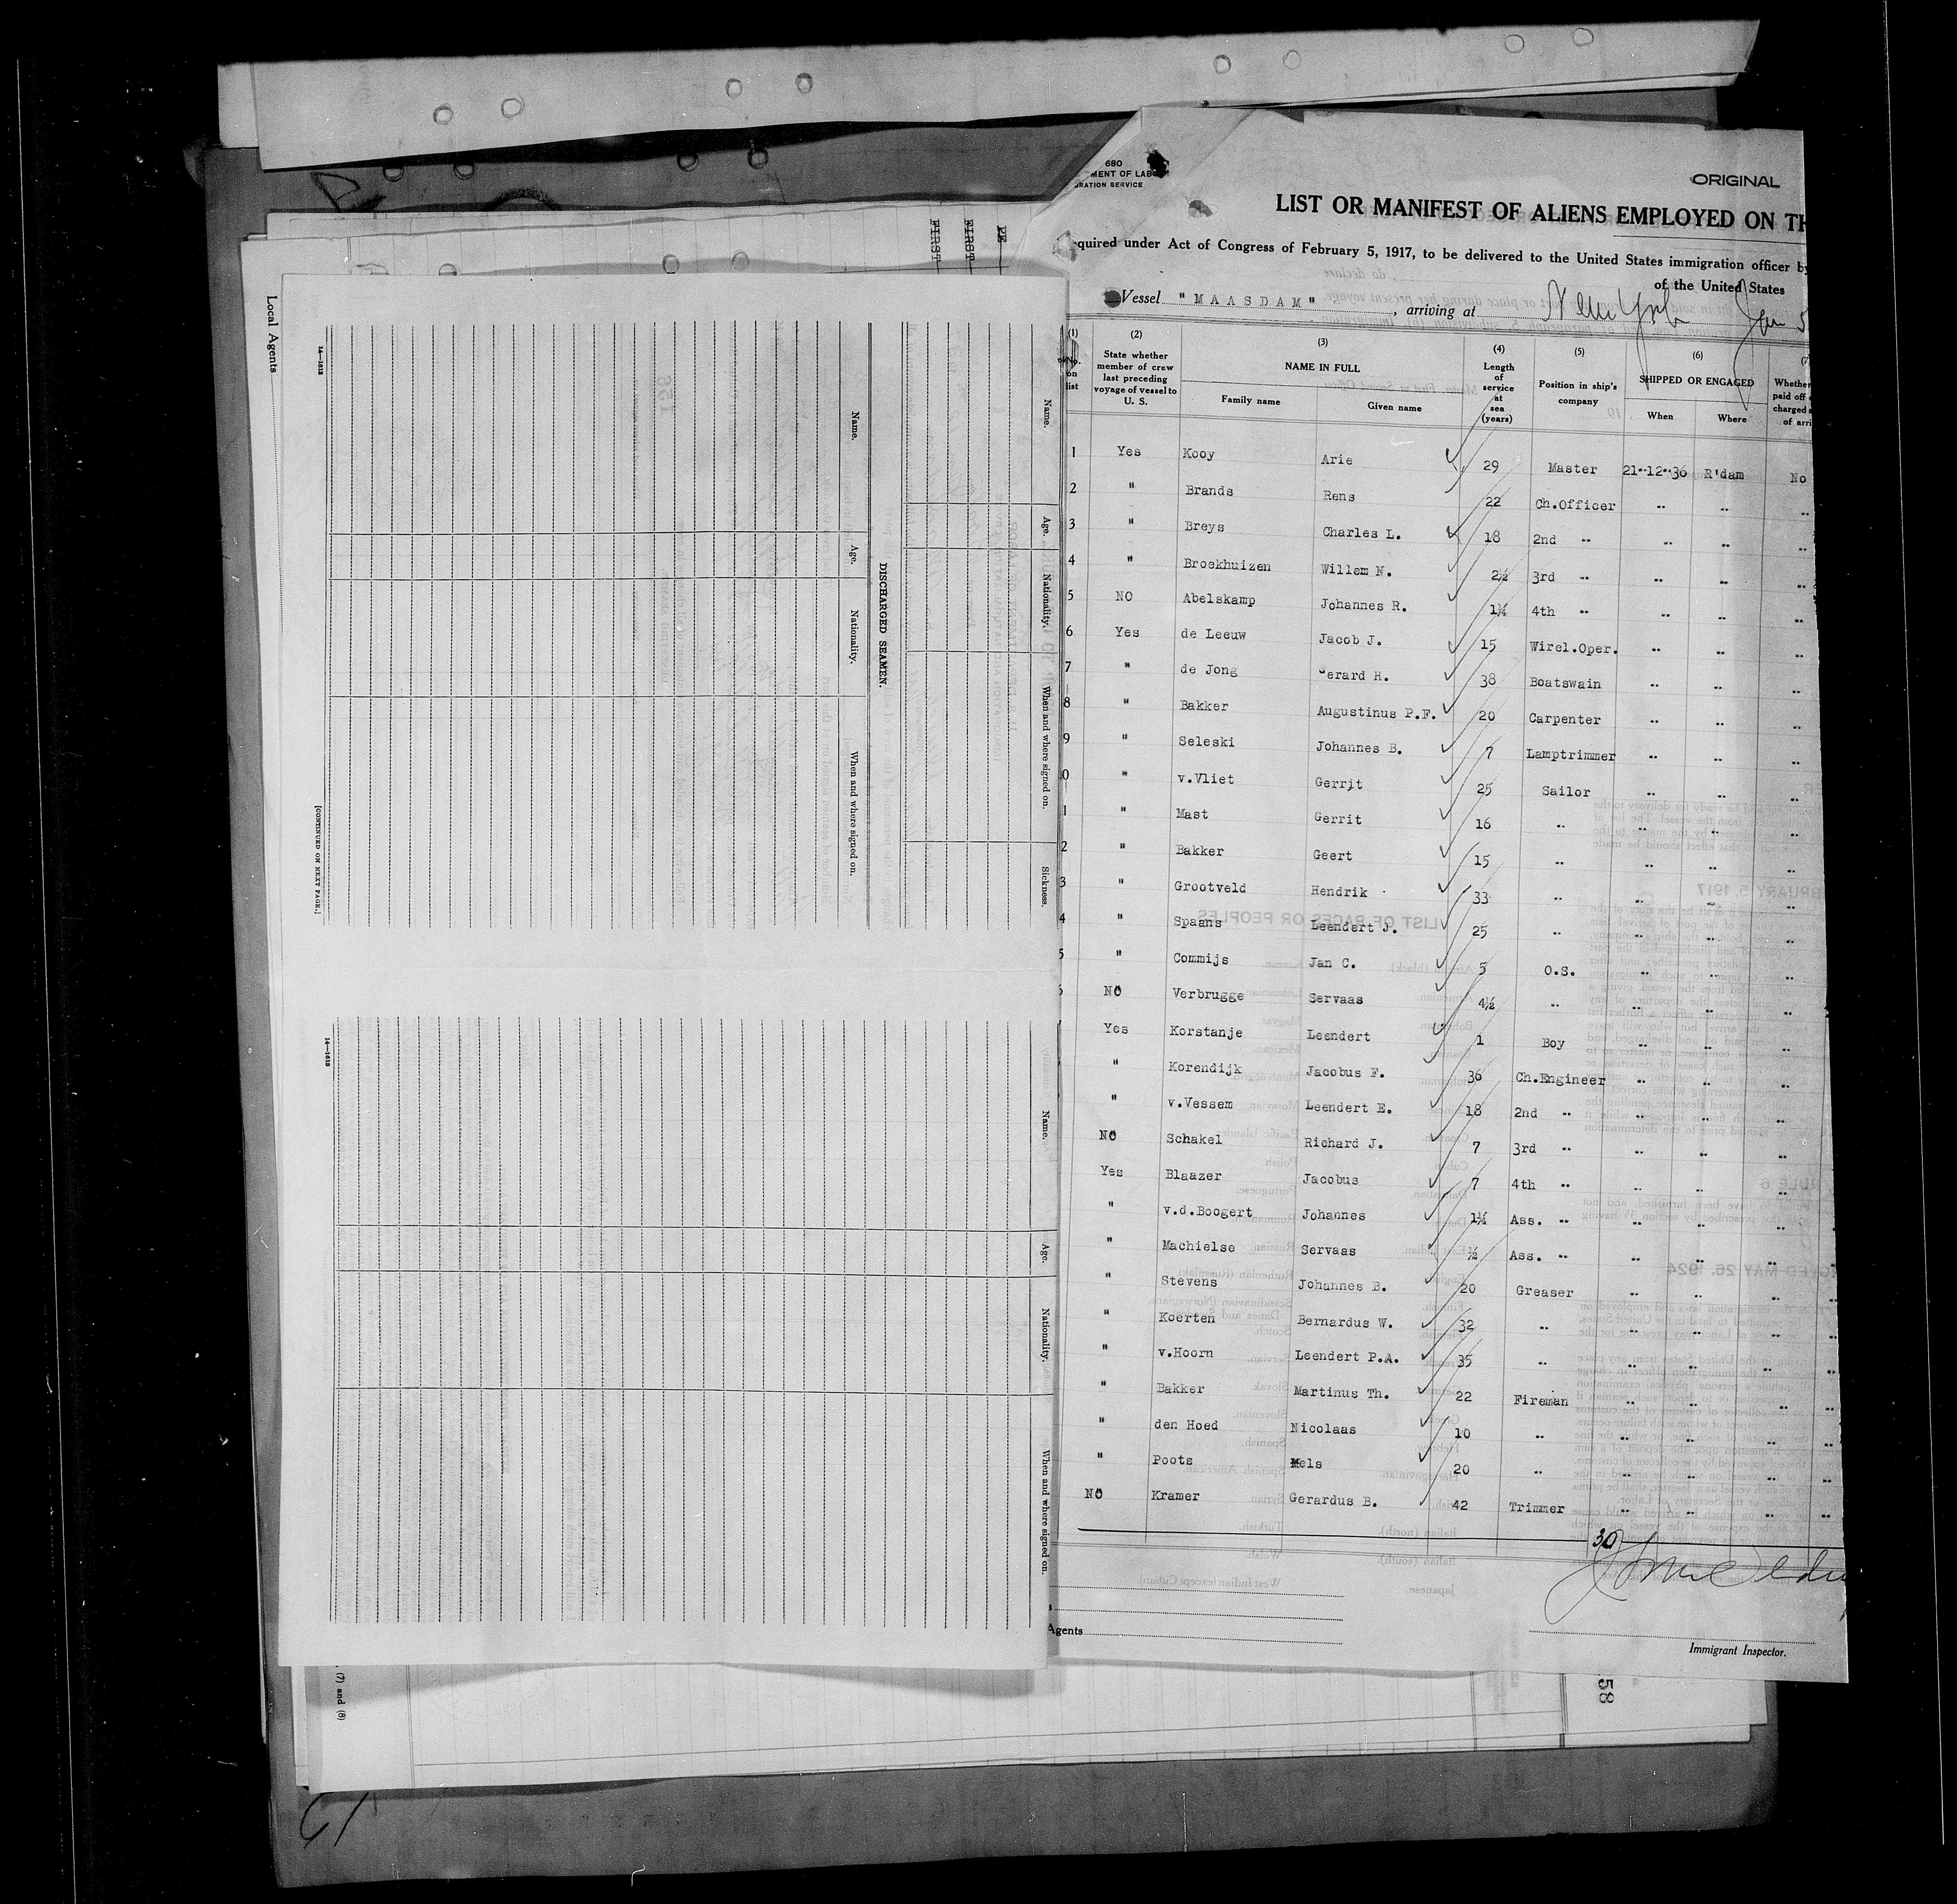 680
MENT OF LABO
GRATION SERVICE
ORIGINAL
LIST OR MANIFEST OF ALIENS EMPLOYED ON TH
quired under Act of Congress of February 5, 1917, to be delivered to the United States immigration officer by
of the United States
Vessel "MAASDAM", arriving at New York Jan 5
(1) (2) (3) (4) (5) (6) (7)
No. on list State whether member of crew last preceding voyage of vessel to U. S. NAME IN FULL Family name Given name Length of service at sea (years) Position in ship's company SHIPPED OR ENGAGED When Where Whether paid off charged of arri
1 Yes Kooy Arie 29 Master 21-12-36 R'dam No
2 " Brands Rens 22 Ch.Officer " " "
3 " Breys Charles L. 18 2nd " " " "
4 " Broekhuizen Willem N. 2½ 3rd " " " "
5 NO Abelskamp Johannes R. 1¼ 4th " " " "
6 Yes de Leeuw Jacob J. 15 Wirel.Oper. " " "
7 " de Jong Gerard H. 38 Boatswain " " "
8 " Bakker Augustinus P.F. 20 Carpenter " " "
9 " Seleski Johannes B. 7 Lamptrimmer " " "
0 " v.Vliet Gerrit 25 Sailor " " "
1 " Mast Gerrit 16 " " " "
2 " Bakker Geert 15 " " " "
3 " Grootveld Hendrik 33 " " " "
4 " Spaans Leendert J. 25 " " " "
5 " Commijs Jan C. 5 O.S. " " "
6 NO Verbrugge Servaas 4½ " " " "
Yes Korstanje Leendert 1 Boy " " "
" Korendijk Jacobus F. 36 Ch.Engineer " " "
" v.Vessem Leendert E. 18 2nd " " " "
NO Schakel Richard J. 7 3rd " " " "
Yes Blaazer Jacobus 7 4th " " " "
" v.d.Boogert Johannes 1¼ Ass. " " " "
" Machielse Servaas ½ Ass. " " " "
" Stevens Johannes B. 20 Greaser " " "
" Koerten Bernardus W. 32 " " " "
" v.Hoorn Leendert P.A. 35 " " " "
" Bakker Martinus Th. 22 Fireman " " "
" den Hoed Nicolaas 10 " " " "
" Poots Mels 20 " " " "
NO Kramer Gerardus B. 42 Trimmer " " "
30
Agents
Immigrant Inspector.
Local Agents
14-1613
[CONTINUED ON NEXT PAGE.]
DISCHARGED SEAMEN.
Name. Age. Nationality. When and where signed on.
Name. Age. Nationality. When and where signed on. Sickness.
14-1613
Name. Age. Nationality. When and where signed on.
FIRST
FIRST
(7) and (8)
58
61